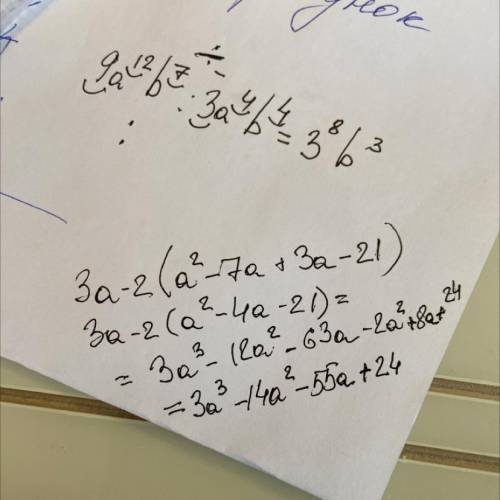 9a¹²b⁷ ÷ 3a⁴b⁴ = 3⁸b³
3a-2(a²-7a+3a-21)
3a-2(a²-4a-21)=
= 3a³-12a²-63a-2a²+8a+24
=3a³-14a²-55a+24